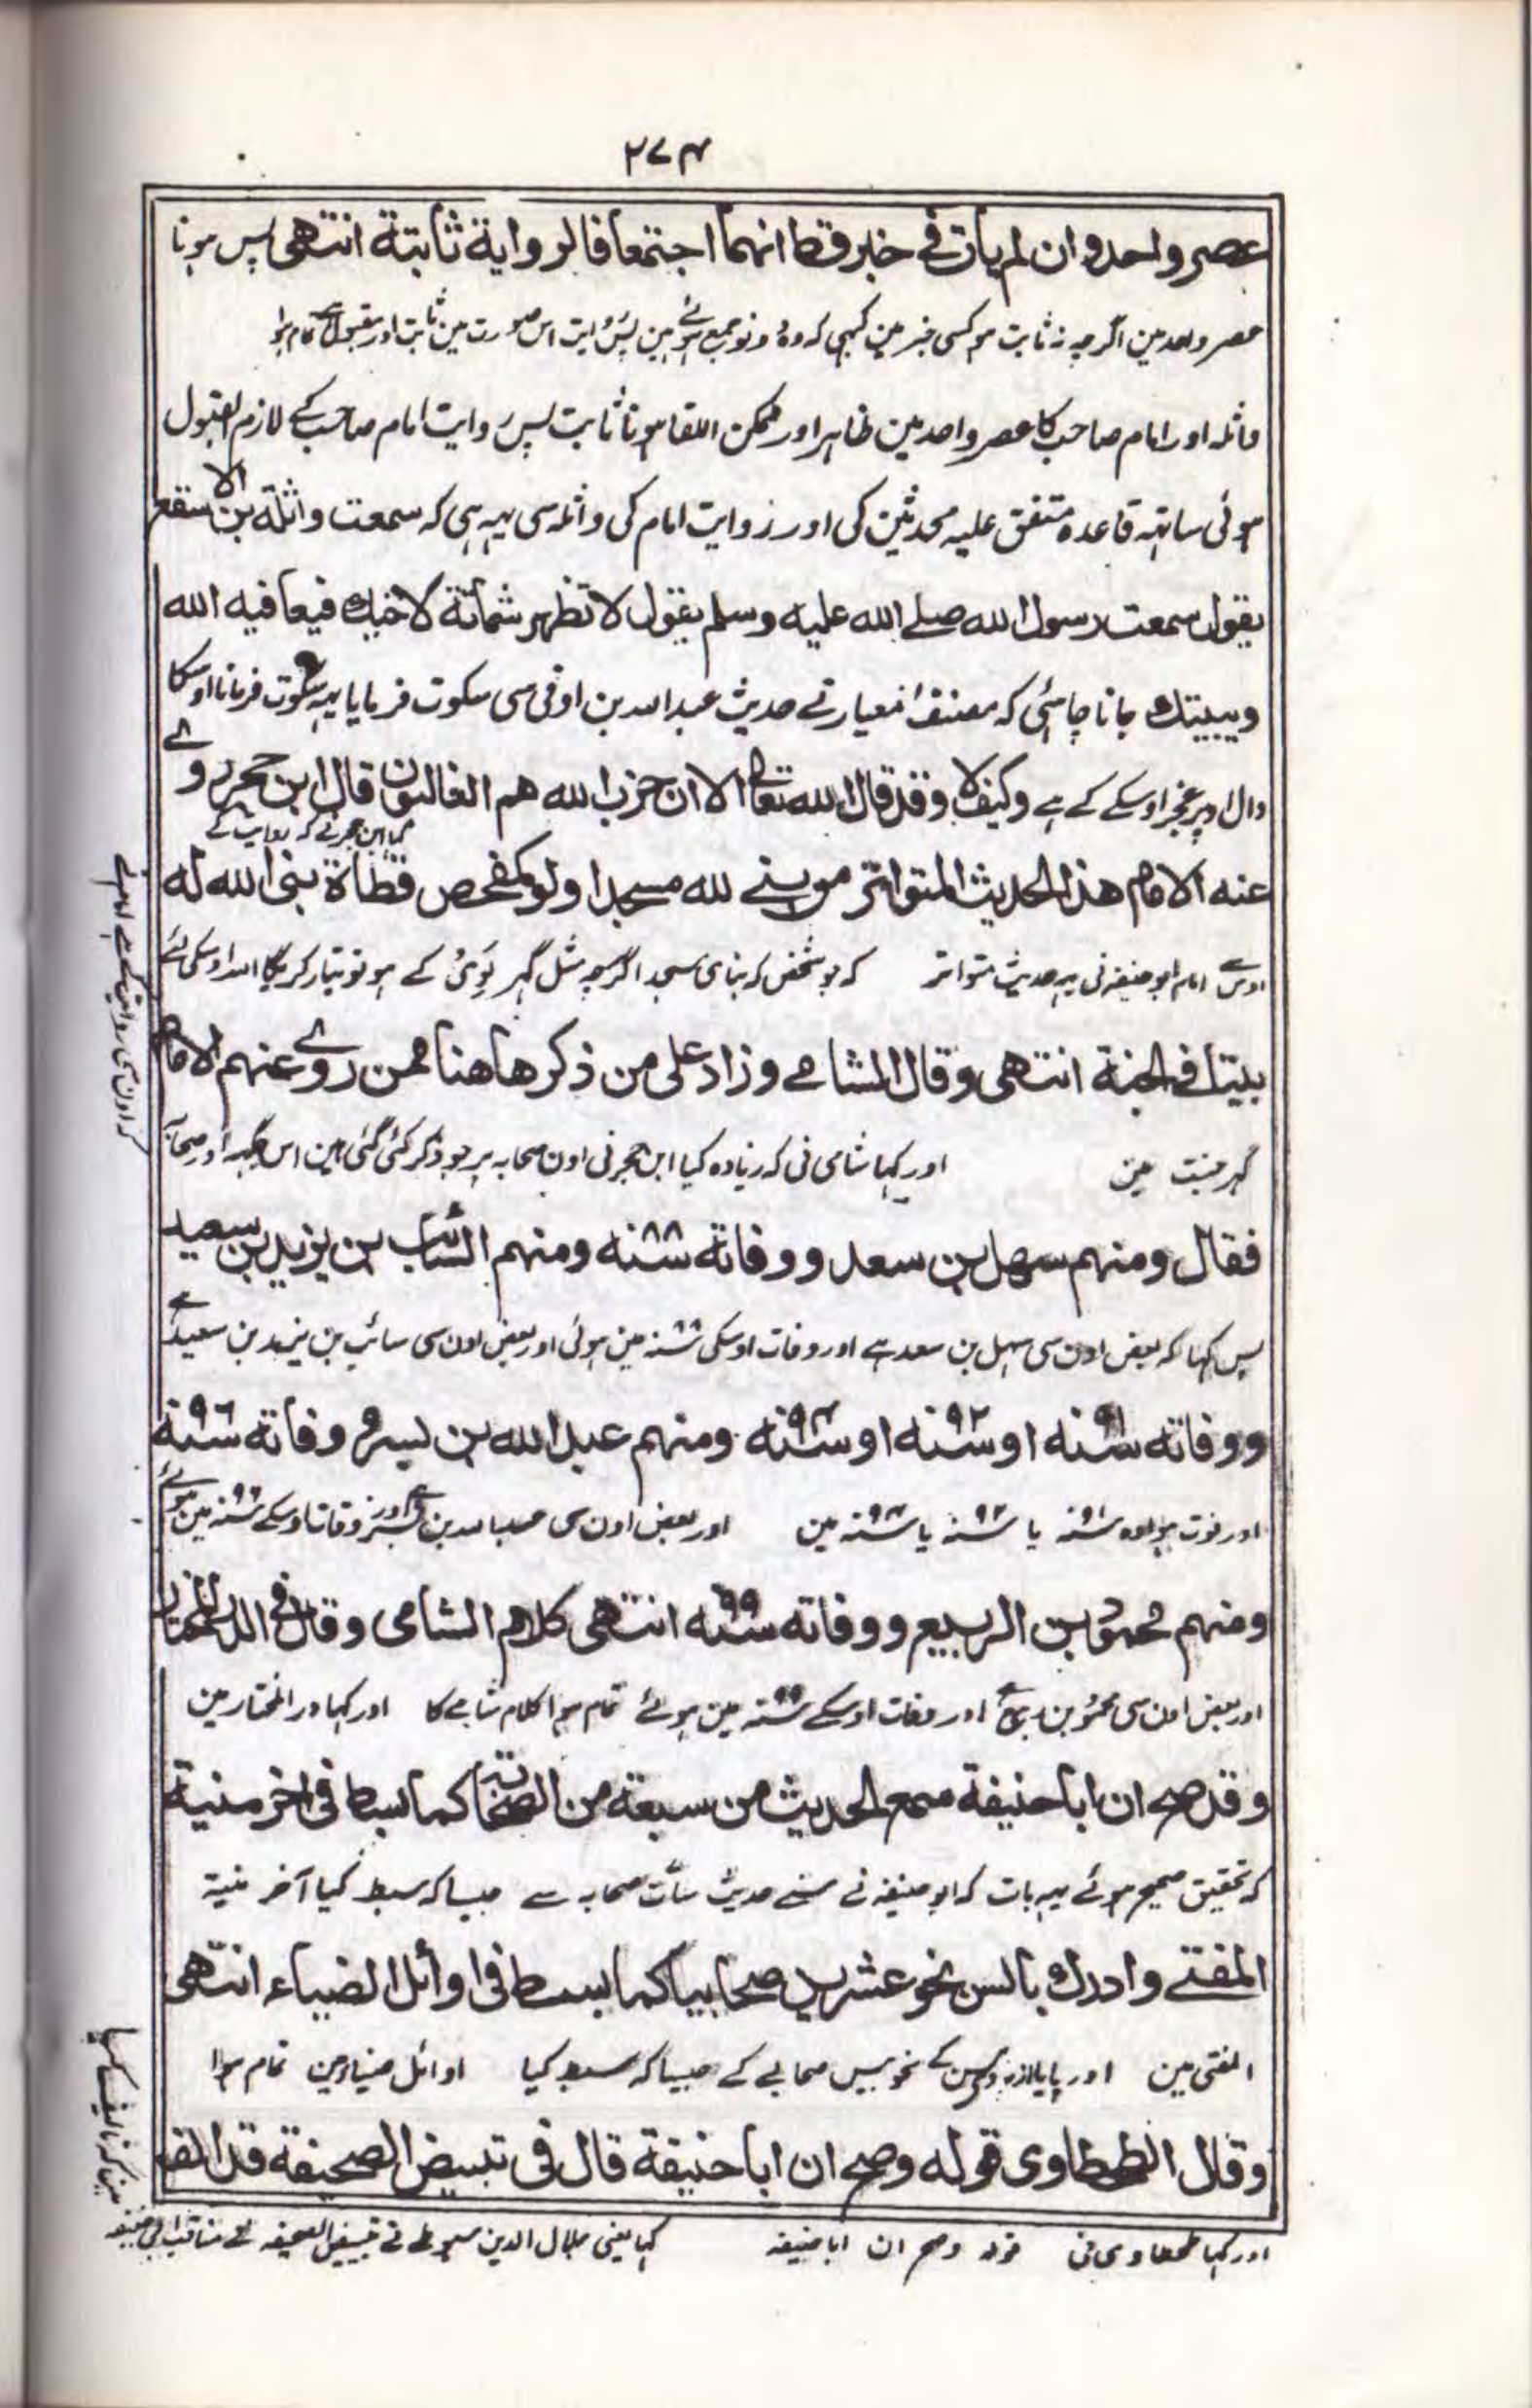 ۲۷۴
عصر واحد و ان لم يات فى خبر قط انهما اجتمعا فالرواية ثابتة انتهى پس ہونا
عصر واحد مین اگرچہ نہ ثابت ہو کسی خبر مین کبہی کہ وہ دونو جمع ہوئے ہین پس روایت اس صورت مین ثابت اور مقبول ہے تمام ہوا
واثلہ اور امام صاحب کا عصر واحد مین ظاہر اور ممکن اللقا ہونا ثابت پس روایت امام صاحب کے لازم القبول
ہوئی ساتہہ قاعدہ متفق علیہ محدثین کی اور روایت امام کی واثلہ سی یہہ ہی کہ سمعت واثلة بن الاسقع
يقول سمعت رسول الله صلے الله عليه وسلم يقول لا تظهر شماتة لاخيك فيعافيه الله
ويبتيك جاننا چاہئی کہ مصنف معیار نے حدیث عبد اللہ بن اوفی سی سکوت فرمایا یہہ سکوت فرمانا اوسکا
دال اوپر عجز اوسکے کے ہے وكيف لا وقد قال الله تعالى الا ان حزب الله هم الغالبون قال ابن حجر روے
کہا ابن حجر نے کہ روایت کے
عنه الامام هذا الحديث المتواتر من بنے لله مسجدا ولو كمفحص قطاة بنى الله له
اوس سے امام ابو حنیفہ نی یہہ حدیث متواتر کہ جو شخص کہ بنای مسجد اگرچہ مثل گہر کے ہو تو تیار کریگا اللہ اوسکی لئے
بيتا فى الجنة انتهى وقال الشامے وزاد على من ذكر هاهنا ممن روے عنهم الامام
گہر جنت مین اور کہا شامی نی کہ زیادہ کیا ابن حجر نی اون صحابہ پر جو ذکر کئی گئی ہین اس جگہہ اور صحابہ
فقال ومنهم سهل بن سعد ووفاته سنه ۸۸ ومنهم السائب بن يزيد بن سعيد
پس کہا کہ بعض اون سی سہل بن سعد ہے اور وفات اوسکی سنہ ۸۸ مین ہوئی اور بعض اون سی سائب بن یزید بن سعید ہے
ووفاته سنه ۹۱ او سنه ۹۲ او سنه ۹۴ ومنهم عبد الله بن بسر ووفاته سنة ۹۶
اور فوت ہوا وہ سنہ ۹۱ یا سنہ ۹۲ یا سنہ ۹۴ مین اور بعض اون سی عبد اللہ بن بسر ہے اور وفات اوسکے سنہ ۹۶ مین ہوئے
ومنهم محمود بن الربيع ووفاته سنه ۹۹ انتهى كلام الشامى وقال فى الدر المختار
اور بعض اون سی محمود بن ربیع ہے اور وفات اوسکے سنہ ۹۹ مین ہوئے تمام ہوا کلام شامے کا اور کہا در المختار مین
وقد صح ان ابا حنيفة سمع الحديث من سبعة من الصحابة كما بسط فى اخر منية
کہ تحقیق صحیح ہوئے یہہ بات کہ ابو حنیفہ نے سنے حدیث سات صحابہ سے جیسا کہ بسط کیا آخر منیۃ
المفتے وادرك بالسن نحو عشرين صحابيا كما بسط فى اوائل الضياء انتهى
المفتی مین اور پایا از روی سن کے نحو بیس صحابے کے جیسا کہ بسط کیا اوائل ضیاء مین تمام ہوا
وقال الطحطاوى قوله وصح ان ابا حنيفة قال فى تبييض الصحيفة قد الف
اور کہا طحطاوی نی قولہ وصح ان ابا حنیفہ کہا یعنی جلال الدین سیوطے نے تبییض الصحیفہ فے مناقب ابی حنیفہ